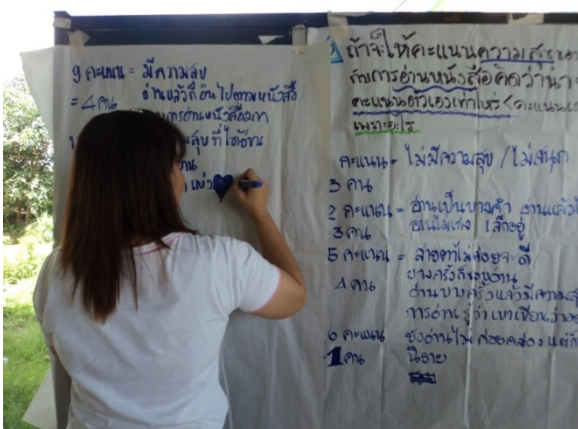 9 คะแนน = มีความสุข
= 4 คน อ่านแล้วก็อินไปตามหนังสือ
การอ่านหนังสือมาก
สุขที่ได้อ่าน
ถ้าจะให้คะแนนความสุข
ด้านการอ่านหนังสือคิดว่า
คะแนนตัวเองเท่าไหร่ (คะแนน
เพราะอะไร
คะแนน = ไม่มีความสุข / ไม่สนุก
3 คน
2 คะแนน = อ่านเป็นบางคำ อ่านแล้ว
3 คน อ่านไม่เก่ง เล็กอยู่
5 คะแนน = สายตาไม่ค่อยจะดี
บางครั้งก็
4 คน อ่านบางครั้งแล้วมีความ
การอ่าน รู้ว่าเขาเขียนว่า
6 คะแนน ยังอ่านไม่ค่อยคล่อง แต่ก็
1 คน นิยาย